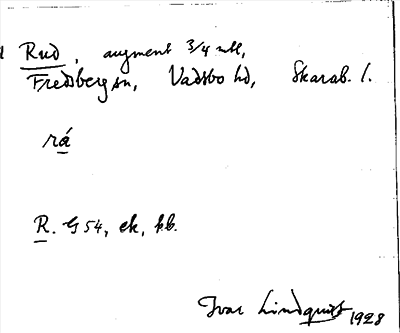 Rud, augment 3/4 mtl,
Fredsberg sn, Vadsbo hd, Skarab. l.
rá
R. G 54, ek, kb.
Ivar Lindquist 1928